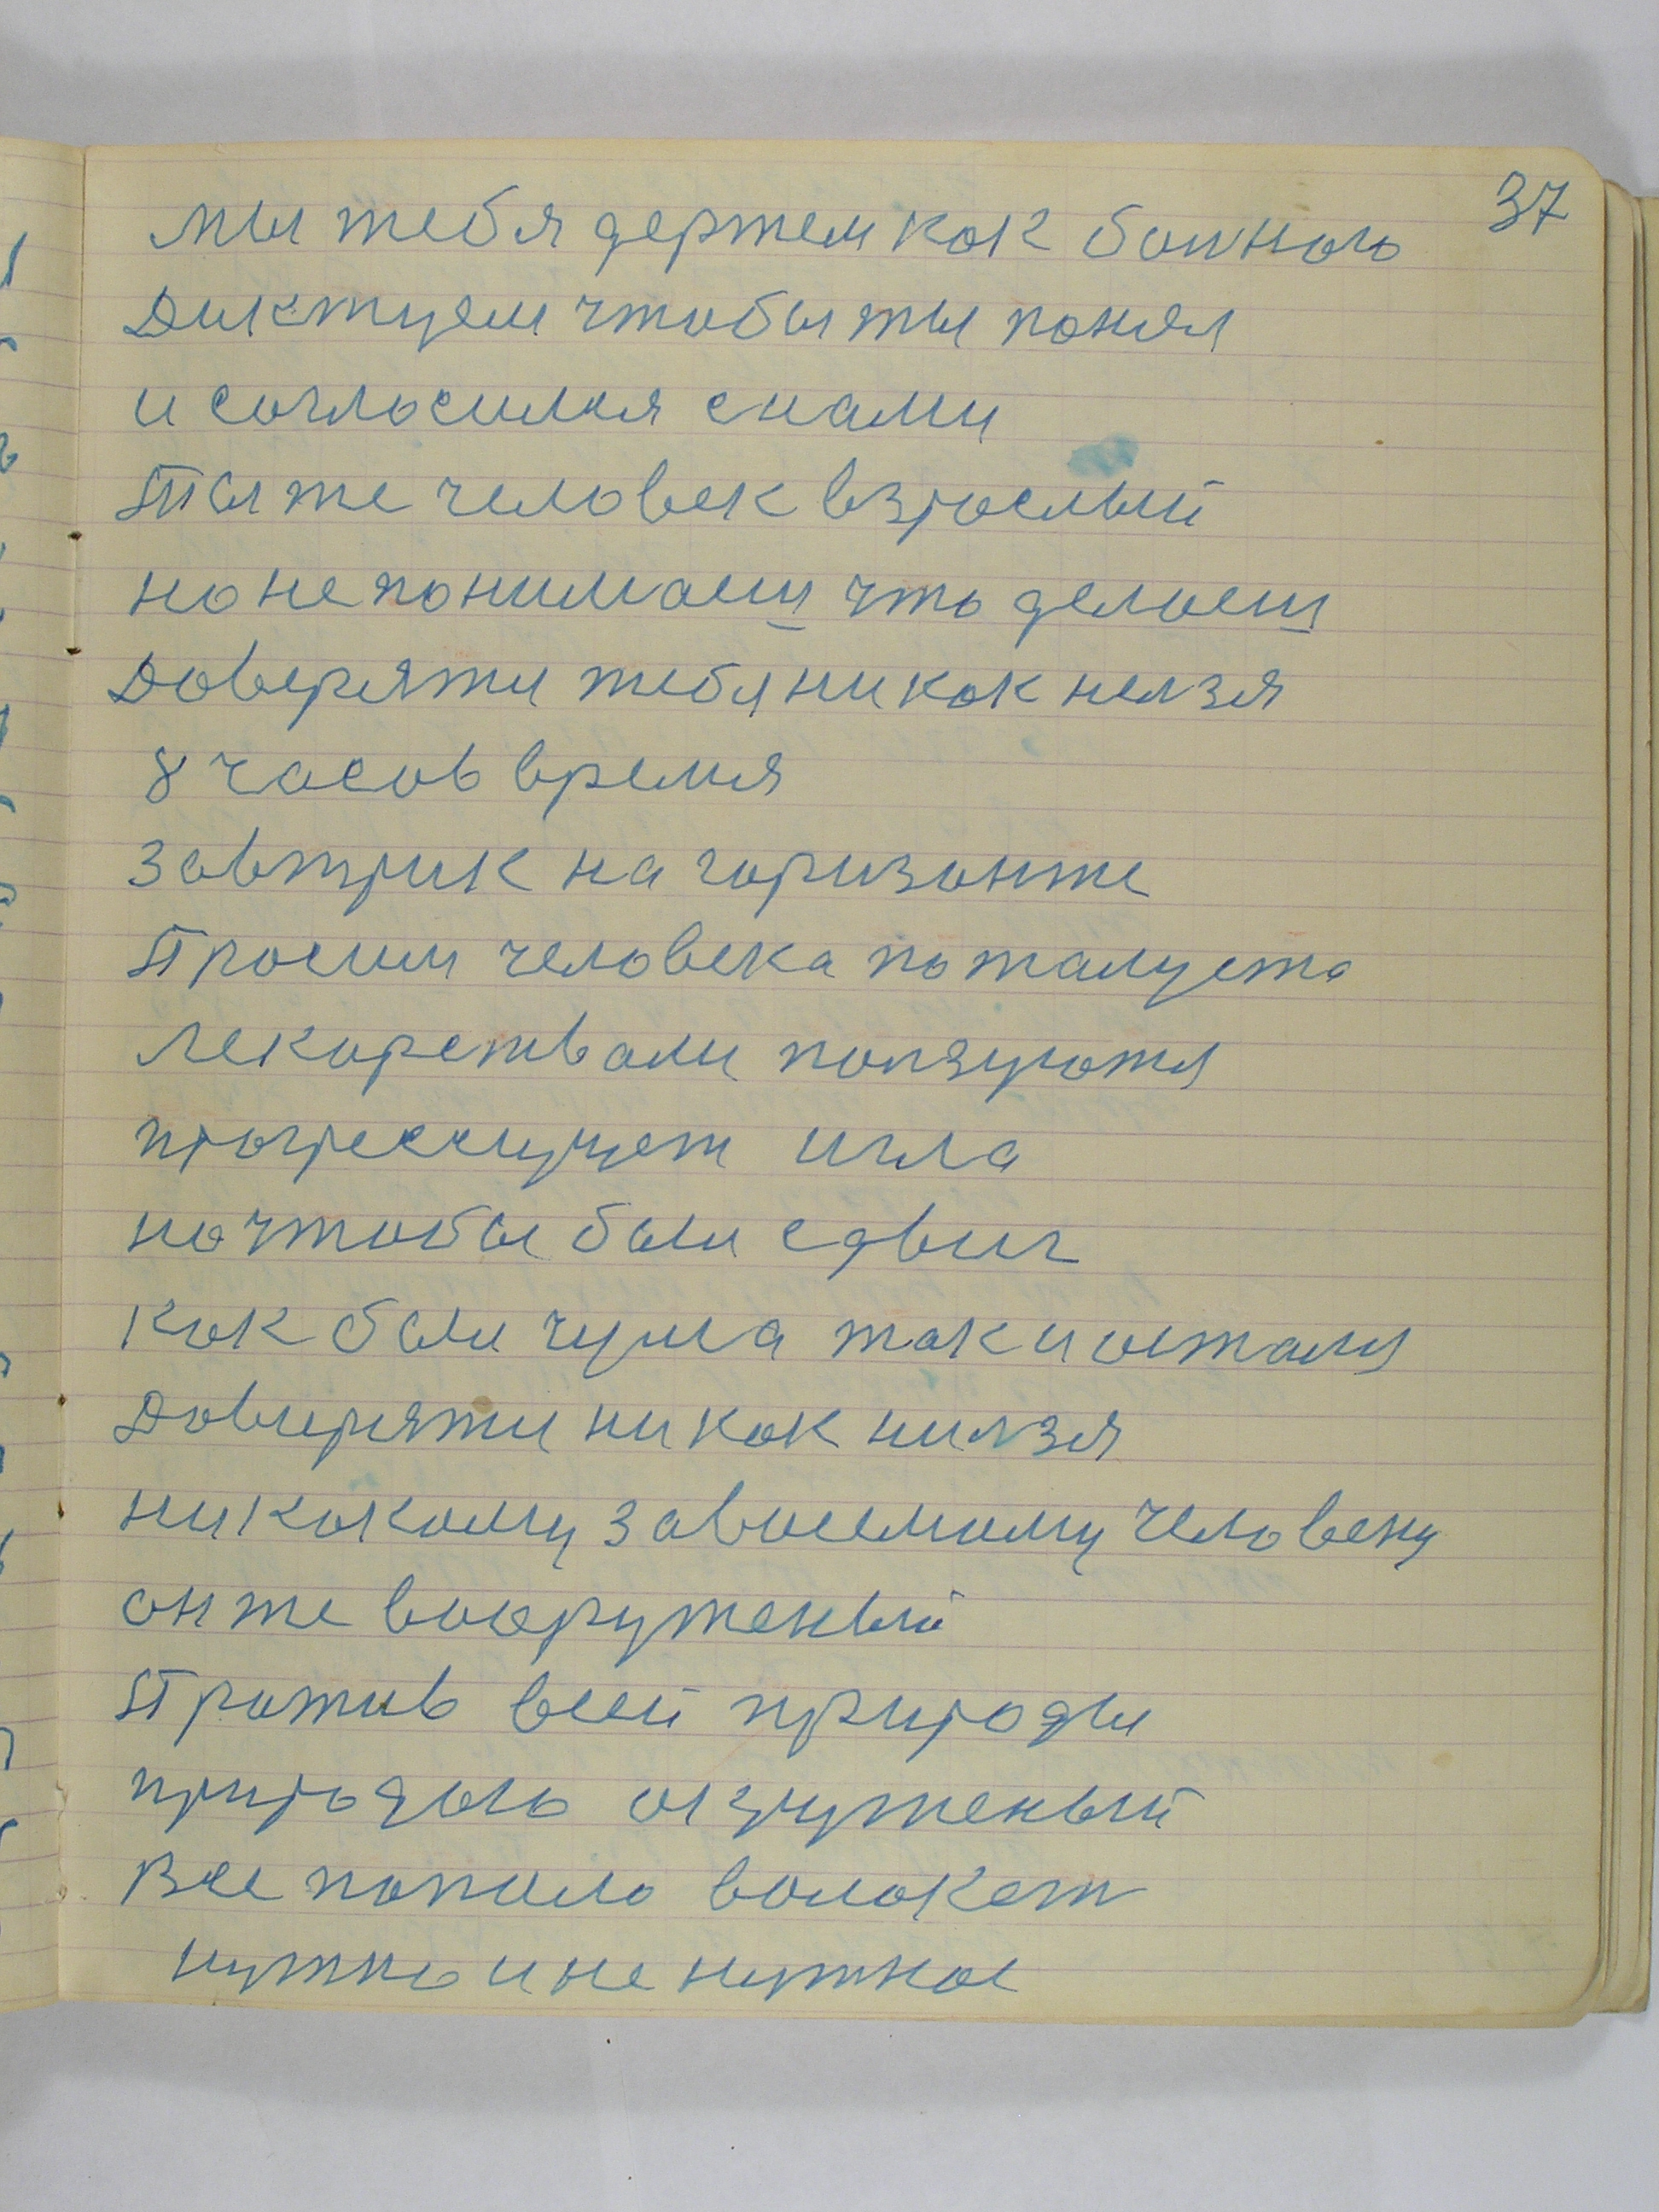 37
мы тебя держем как болного
Диктуем чтобы ты понял
и согласился снами
Ты же человек взрослый
но не понимаеш что делаеш
Доверяти тебя никак нелзя
8 часов время
завтрик на горизонте
Просим человека пожалуста
Лекарствами ползуютя
прогрессирует игла
но чтобы был сдвиг
как был чума так и остался
Довиряти никак нилзя
никакому зависемому человеку
он же вооруженый
Против всей природы
природою окружений
Все попало волокет
нужно и не нужное